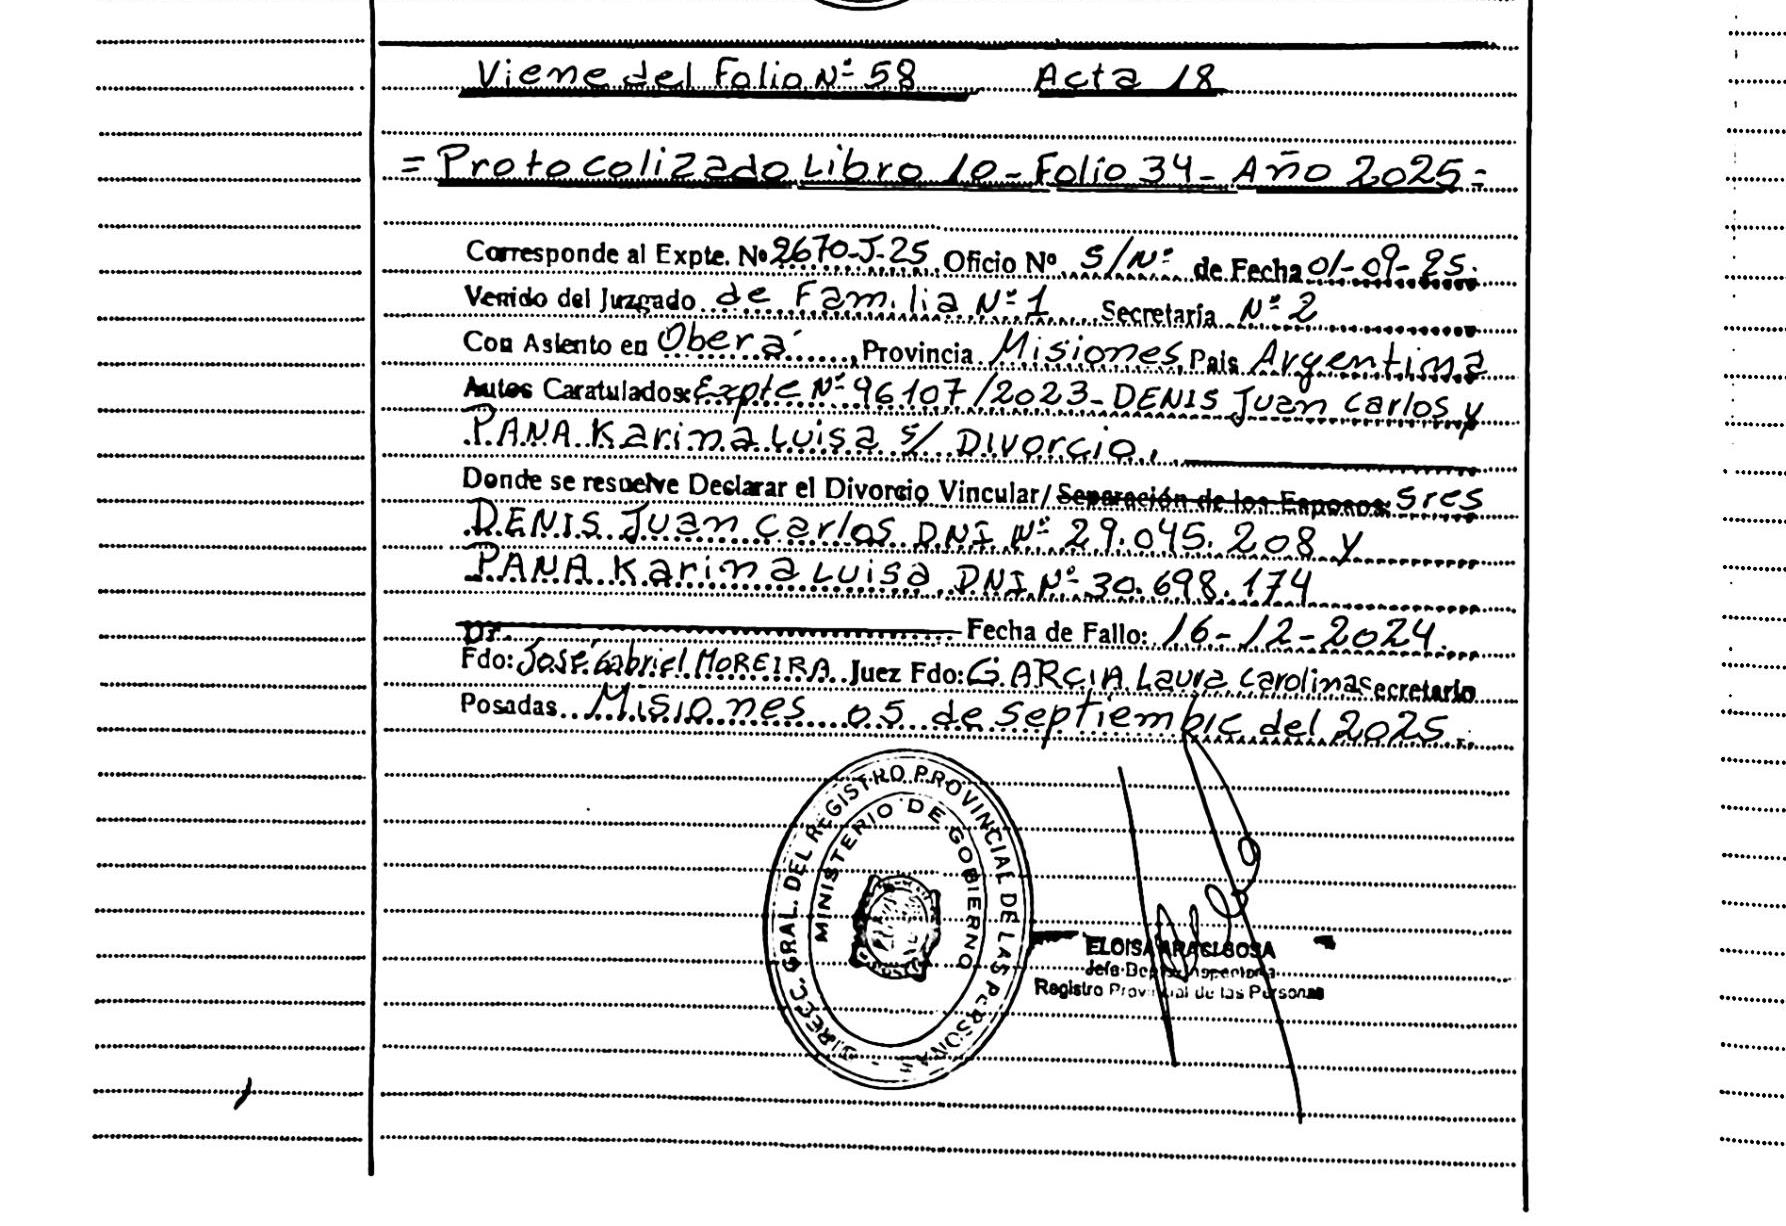 Viene del Folio Nº 58 Acta 18
= Protocolizado Libro 10 - Folio 34 - Año 2025 =
Corresponde al Expte. Nº 2670-J-25 Oficio Nº S/Nº de Fecha 01-09-25.
Venido del Juzgado de Familia Nº 1 Secretaría Nº 2
Con Asiento en Oberá, Provincia Misiones País Argentina
Autos Caratulados: Expte Nº 96107/2023 - DENIS Juan Carlos y
PANA Karina Luisa s/ Divorcio.
Donde se resuelve Declarar el Divorcio Vincular/ Separación de los Esposos: Sres
DENIS Juan Carlos DNI Nº 29.045.208 y
PANA Karina Luisa DNI Nº 30.698.174
Fecha de Fallo: 16-12-2024.
Dr.
Fdo: José Gabriel MOREIRA Juez Fdo: GARCIA Laura Carolina Secretario
Posadas Misiones 05 de septiembre del 2025.
DIRECC. GRAL. DEL REGISTRO PROVINCIAL DE LAS PERSONAS
MINISTERIO DE GOBIERNO
ELOISA SOSA
Registro Provincial de las Personas